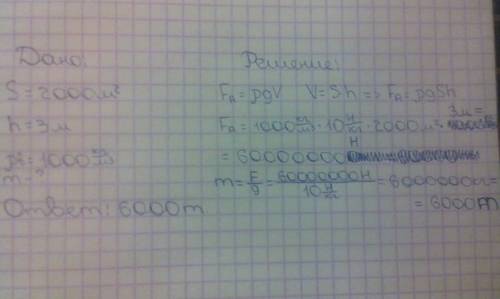 Дано:
S = 2000 м²
h = 3 м
ρ = 1000 кг/м³
m - ?
Ответ: 6000 т
Решение:
Fₐ = ρgV V = Sh => Fₐ = ρgSh
Fₐ = 1000 кг/м³ · 10 Н/кг · 2000 м² · 3м =
= 60000000 Н
m = F/g = 60000000Н / 10 Н/кг = 6000000 кг =
= 6000 т